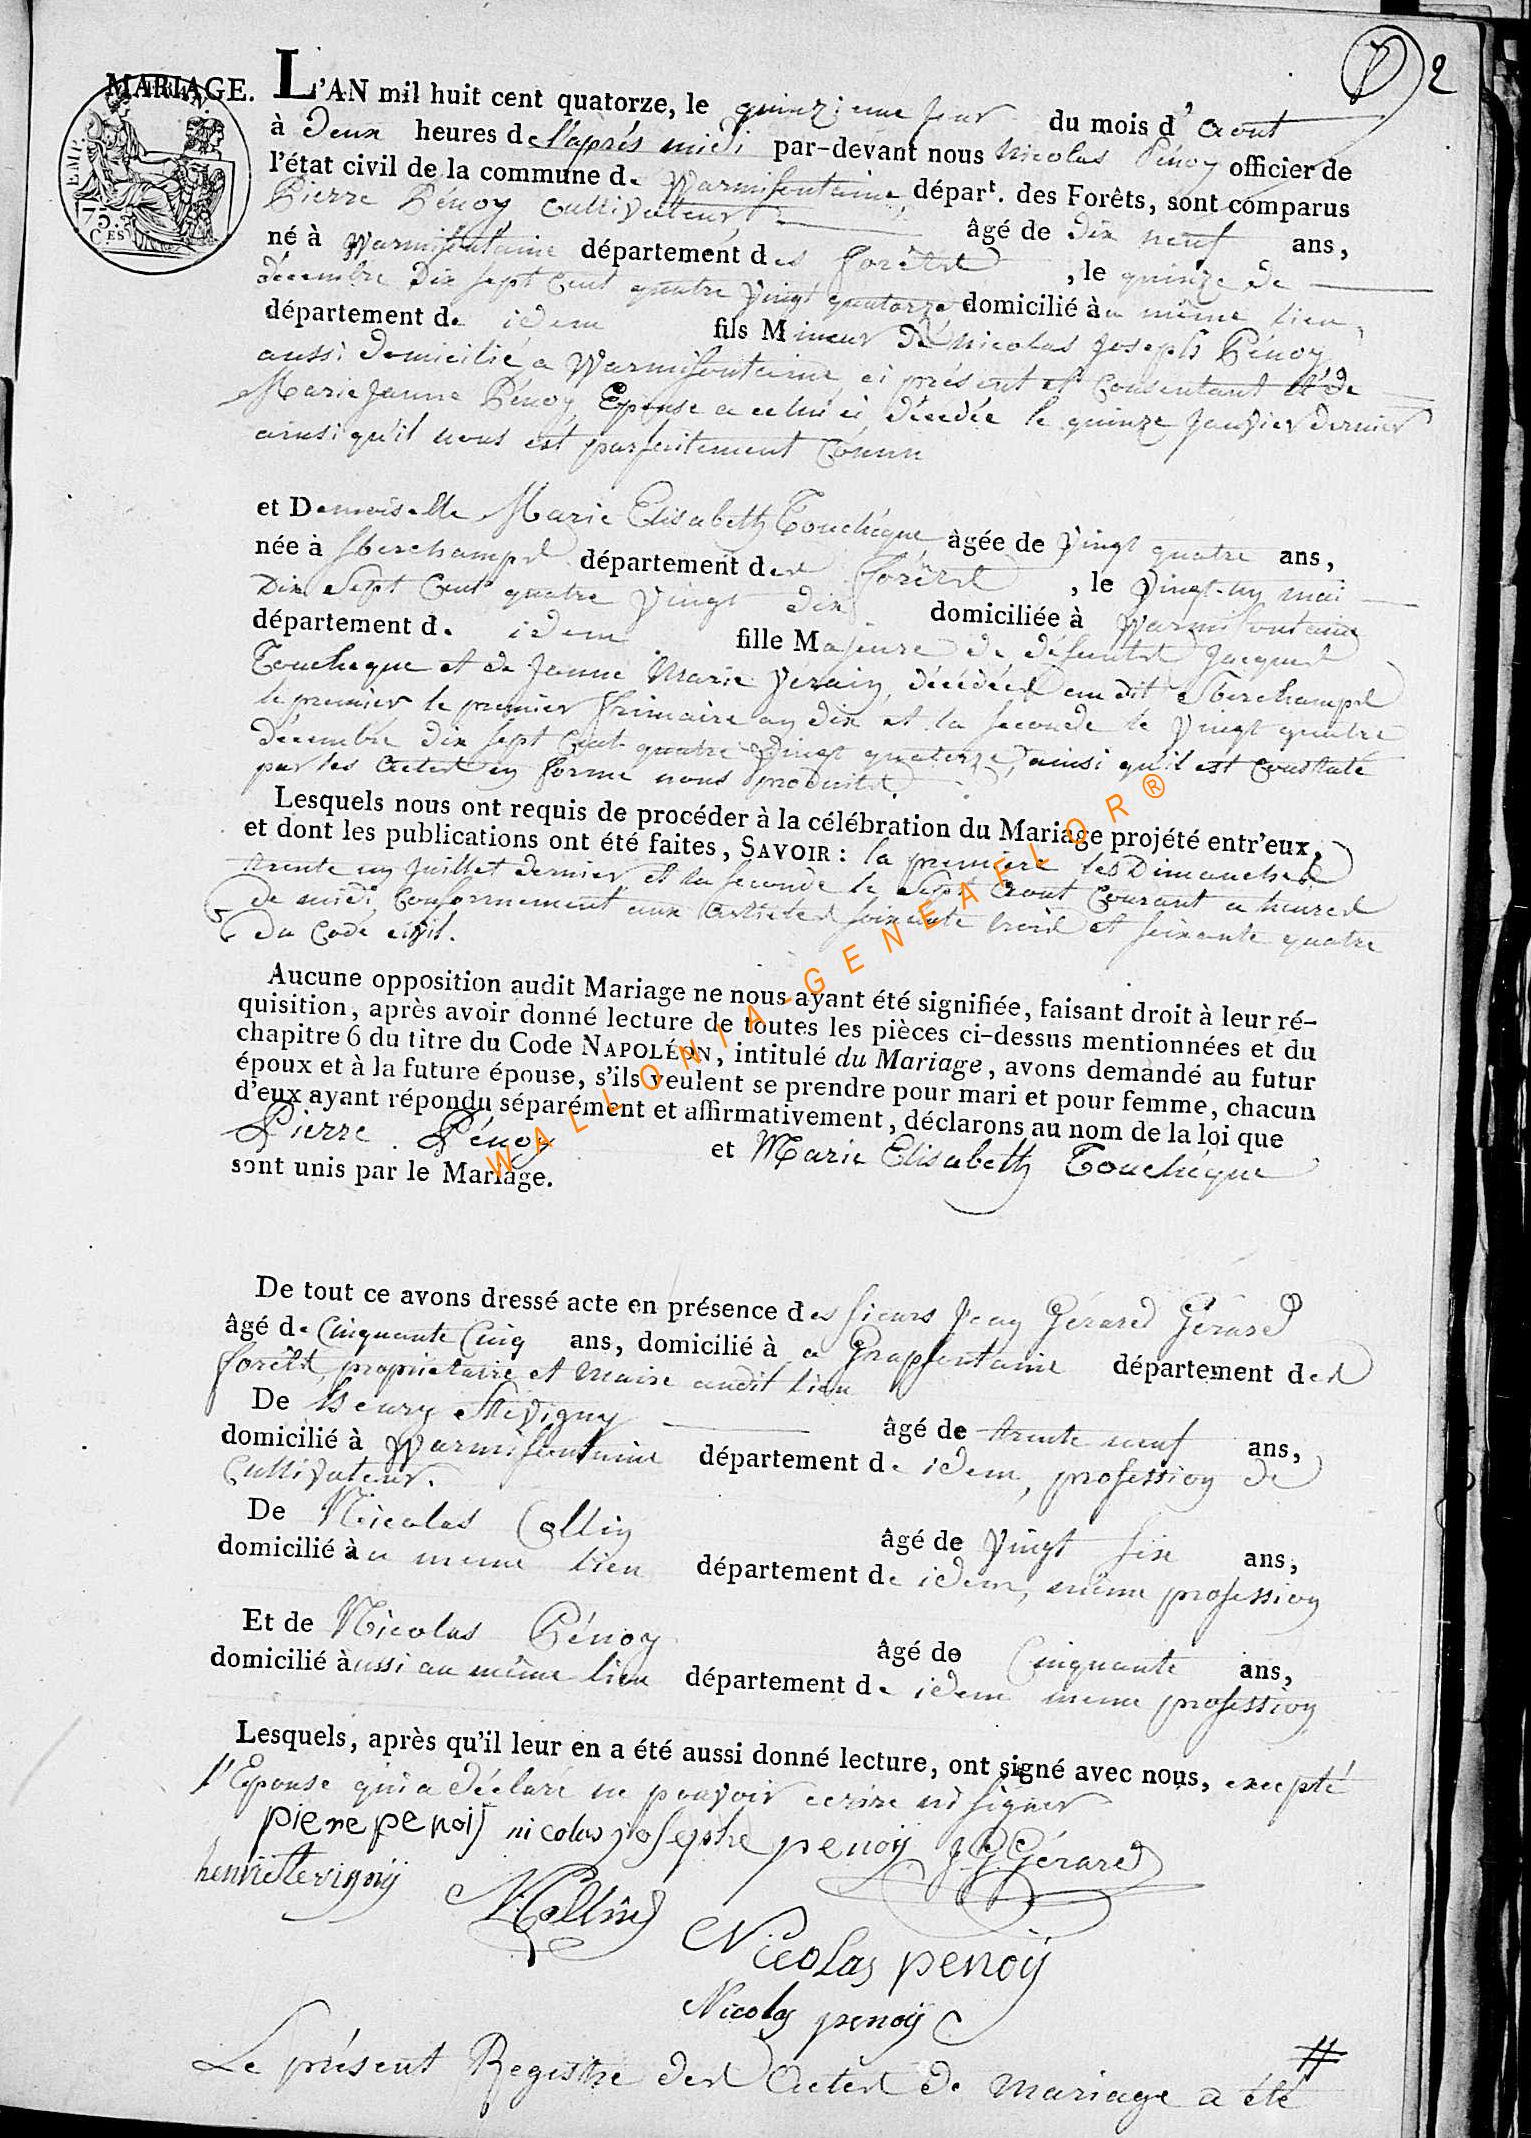 2
MARIAGE. L'AN mil huit cent quatorze, le quinzieme jour du mois d'aout
à deux heures de l'aprés midi par-devant nous Nicolas Pénoy officier de
l'état civil de la commune de Warmifontaine, départ. des Forêts, sont comparus
Pierre Pénoy, cultivateur âgé de dix neuf ans,
né à Warmifontaine département des forêts, le quinze de
décembre dix sept cent quatre vingt quatorze domicilié au même lieu,
département de idem fils Mineur de Nicolas Joseph Pénoy,
aussi domicilié a Warmifontaine, ci présent et consentant & de
Marie Jeanne Pénoy, Epouse a celui ci, décedée le quinze janvier dernier
ainsi qu'il nous est parfaitement connu
EMP.
75
CES
et Demoiselle Marie Elisabeth Touchèque, àgée de vingt quatre ans,
née à Sberchamps département des forêts, le vingt-un mai
dix sept cent quatre vingt dix domiciliée à Warmifontaine
département de idem fille Majeure de défunts Jacques
Toucheque et de Jeanne Marie Jerain, décédés audit Sberchamps
le premier le premier frimaire an dix et la seconde le vingt quatre
décembre dix sept cent quatre vingt quatorze, ainsi qu'il est constaté
par les actes en forme nous produits.
Lesquels nous ont requis de procéder à la célébration du Mariage projété entr'eux,
et dont les publications ont été faites, SAVOIR : la premiere les Dimanches
trente un juillet dernier et la seconde le sept aout courant a heures
de midi, conformement aux articles soixante trois et soixante quatre
du code civil.
Aucune opposition audit Mariage ne nous ayant été signifiée, faisant droit à leur ré-
quisition, après avoir donné lecture de toutes les pièces ci-dessus mentionnées et du
chapitre 6 du titre du Code NAPOLÉON, intitulé du Mariage, avons demandé au futur
époux et à la future épouse, s'ils veulent se prendre pour mari et pour femme, chacun
d'eux ayant répondu séparément et affirmativement, déclarons au nom de la loi que
Pierre Pénoy et Marie Elisabeth Touchèque
sont unis par le Mariage.
WALLONIA-GENEAFLOR®
De tout ce avons dressé acte en présence des sieurs Jean Gérard Gérard
âgé de Cinquante Cinq ans, domicilié à a Grapfontaine département des
forêts, propriétaire et maire audit lieu
De Henry Stévigny âgé de trente neuf ans,
domicilié à Warmifontaine département de idem, profession de
cultivateur.
De Nicolas Collin âgé de vingt six ans,
domicilié au meme lieu département de idem, même profession
Et de Nicolas Pénoy âgé de Cinquante ans,
domicilié aussi au même lieu département de idem meme profession
Lesquels, après qu'il leur en a été aussi donné lecture, ont signé avec nous, excepté
l'Epouse qui a déclaré ne pouvoir ecrire ni signer
piere penoij nicolas josephe penoij J G Gérard
henri stevignij
N Collin
Nicolas penoij
Nicolas penoij
Le présent Registre des actes de mariage a été #